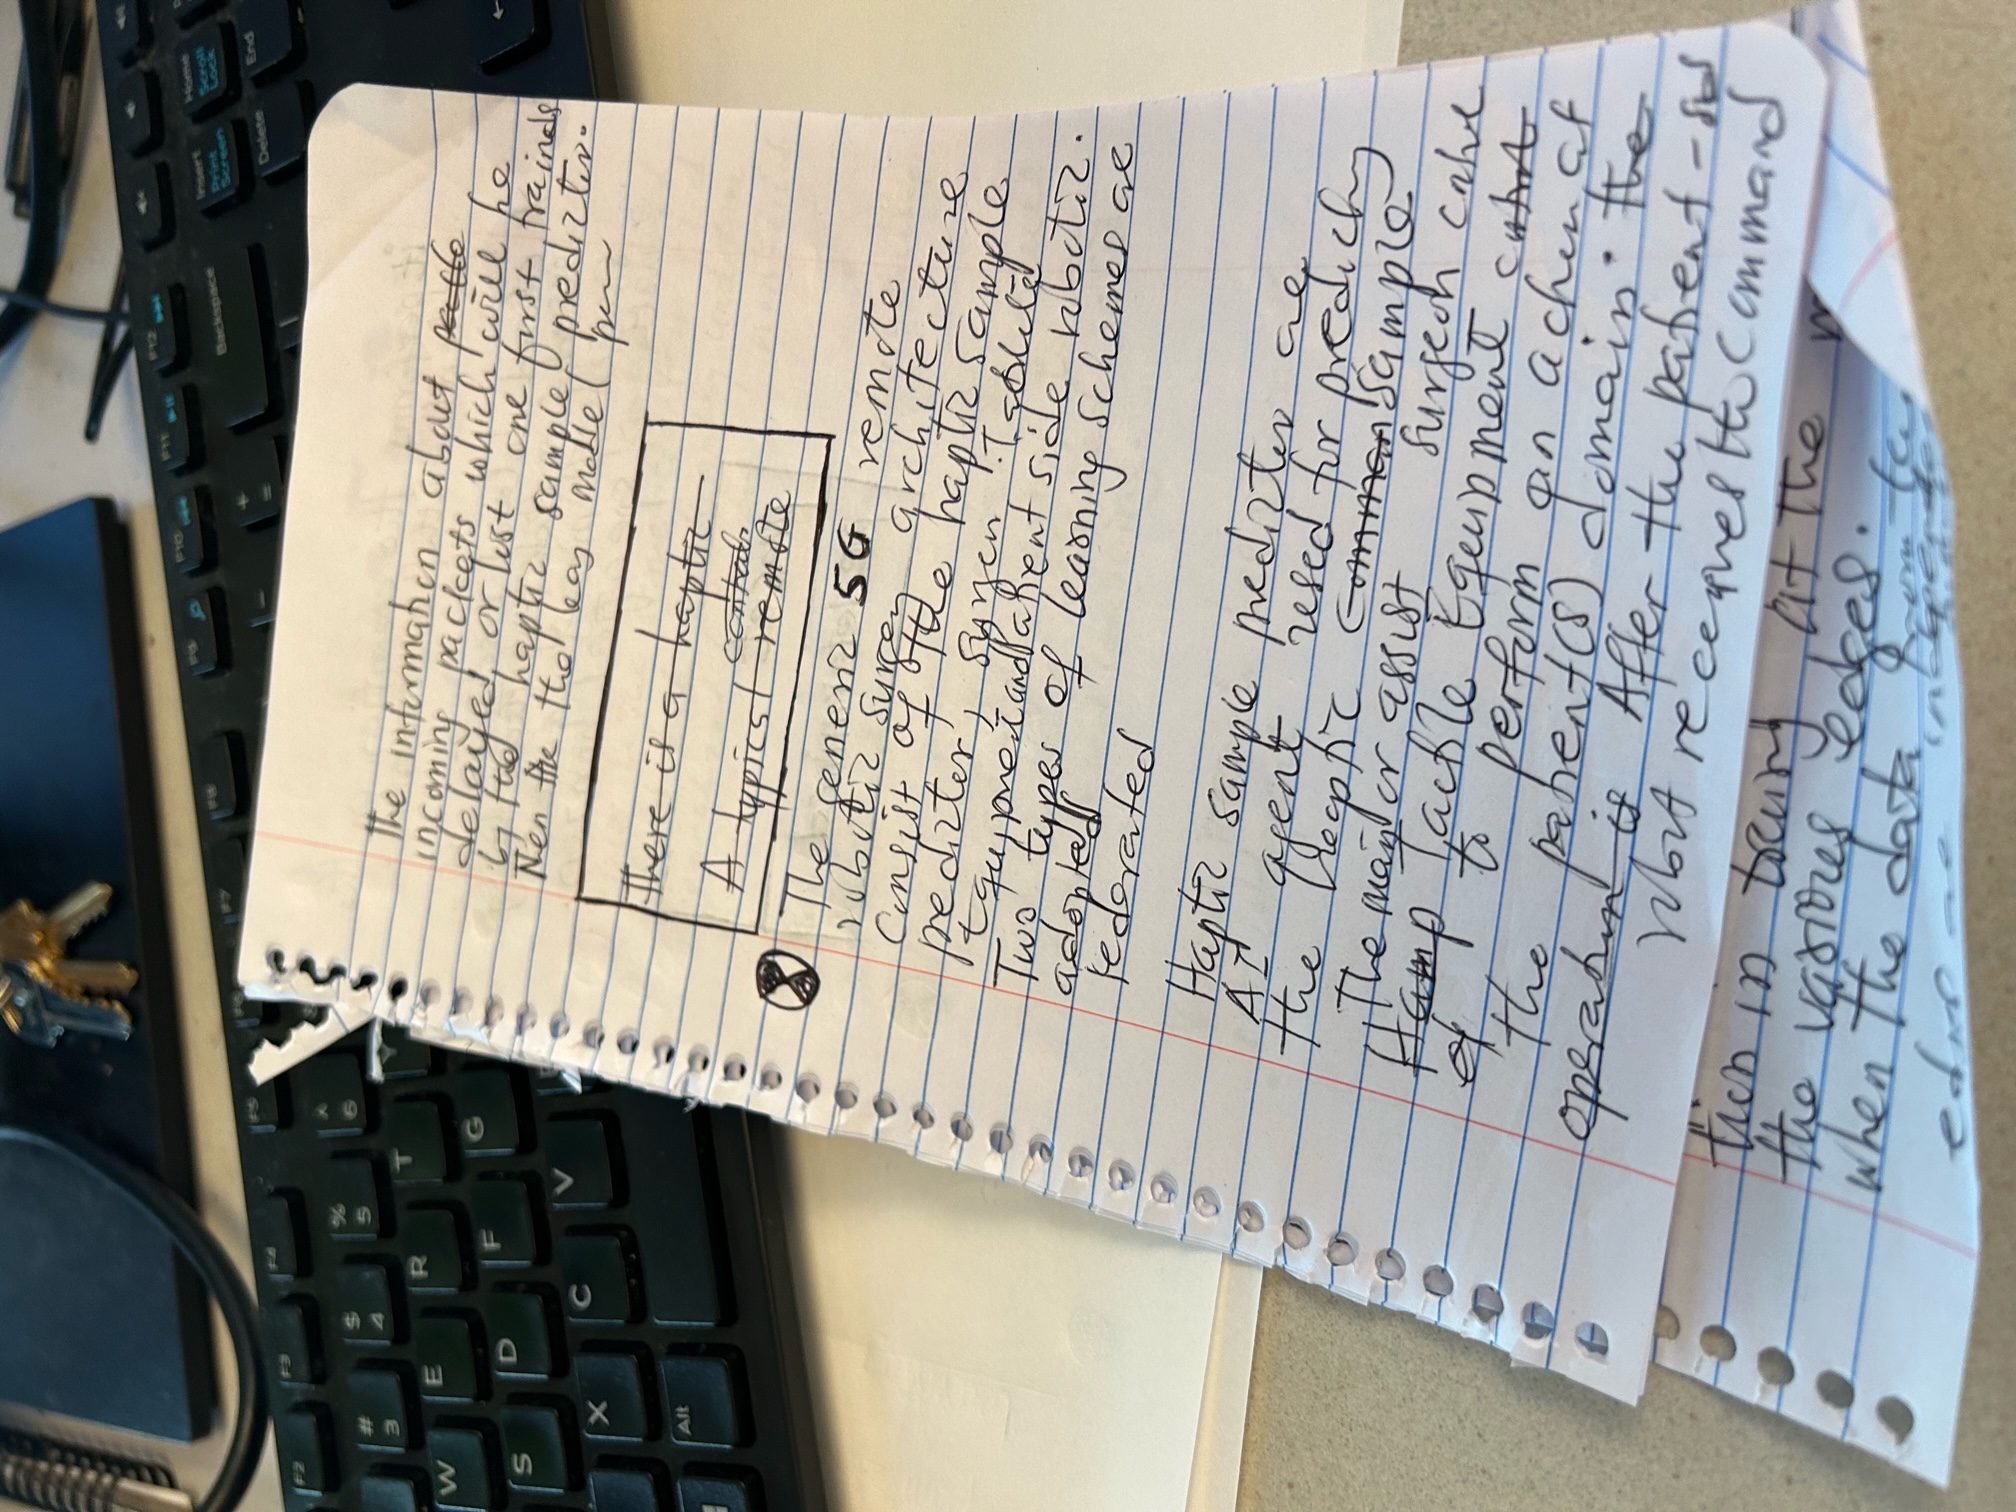 F9
F10
F11
F12
F8
F7
Backspace
Insert
Print
Screen
Home
Scroll
Lock
Delete
End
F2
F3
F4
F5
#
3
$
4
%
5
^
6
W
E
R
T
Y
S
D
F
G
X
C
V
Alt
The information about
incoming packets which will be
delayed or lost are first trained
by the haptic sample predictor.
the the key model
There is a haptic
contab
A typical remote
The generic 5G remote
robotic surgey architecture
consist of the haptic sample
predictor, surgen Tactile
Equipment and Patient side robotic.
Two types of learning schemes are
adopted
Federated
Haptic sample predictor are
AI agent used for predicting
the haptic comman sample
The main or assist surgeon
Hamp Tactile Equipment
to perform an action at
the patient(s) domain. The
operation is After the patient -
robot receives the Command
tion in at the
the various edges.
when the data from the